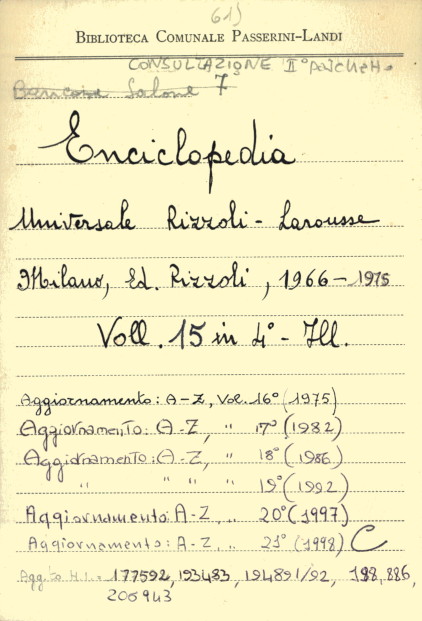 61)
BIBLIOTECA COMUNALE PASSERINI-LANDI
CONSULTAZIONE II°
Bancone Salone 7
Enciclopedia
Universale Rizzoli - Larousse
Milano, Ed. Rizzoli, 1966 - 1975
Voll. 15 in 4° - Ill.
Aggiornamento: A-Z, Vol. 16° (1975)
Aggiornamento: A-Z, " 17° (1982)
Aggiornamento: A-Z, " 18° (1986)
" " " " 19° (1992)
Aggiornamento A-Z, " 20° (1997)
Aggiornamento: A-Z, " 21° (1998) C
177592, 193483, 194891/92, 198,886,
206943